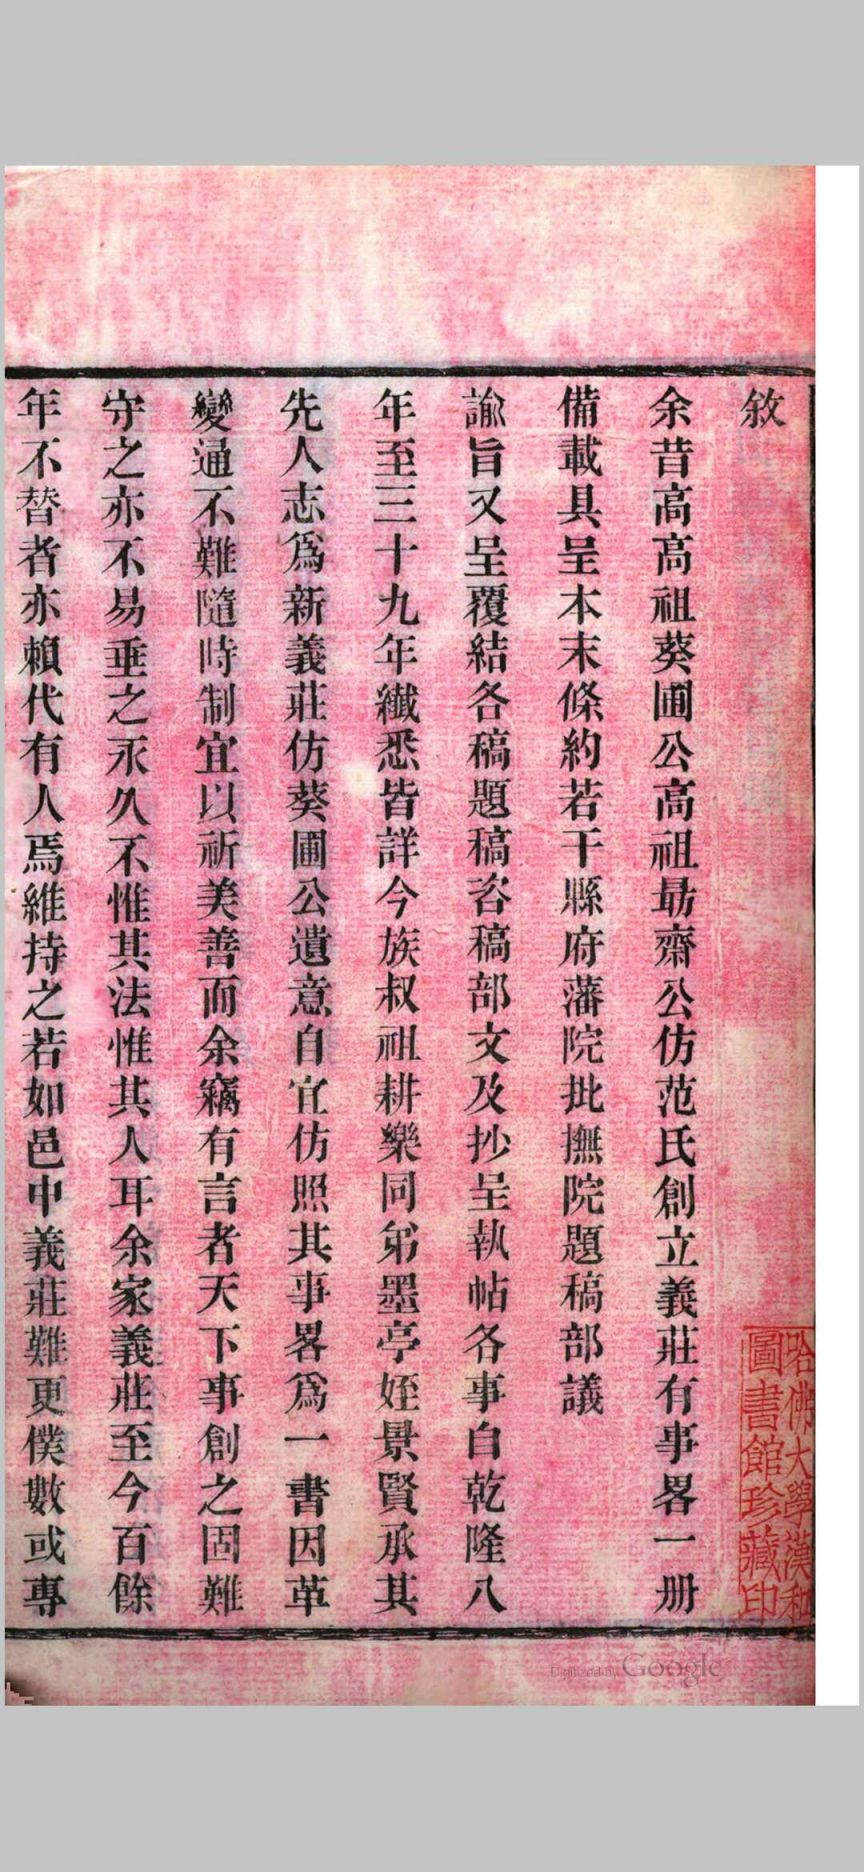 敘
余昔高高祖葵圃公高祖勗齋公仿范氏創立義莊有事畧一册
備載具呈本末條約若干縣府藩院批撫院題稿部議
諭旨又呈覆結各稿題稿咨稿部文及抄呈執帖各事自乾隆八
年至三十九年纎悉皆詳今族叔祖耕樂同弟墨亭姪景賢承其
先人志爲新義莊仿葵圃公遺意自宜仿照其事畧爲一書因革
變通不難隨時制宜以祈美善而余竊有言者天下事創之固難
守之亦不易垂之永久不惟其法惟其人耳余家義莊至今百餘
年不替者亦賴代有人焉維持之若如邑中義莊難更僕數或專
哈佛大學漢和
圖書館珍藏印
Digitized by Google